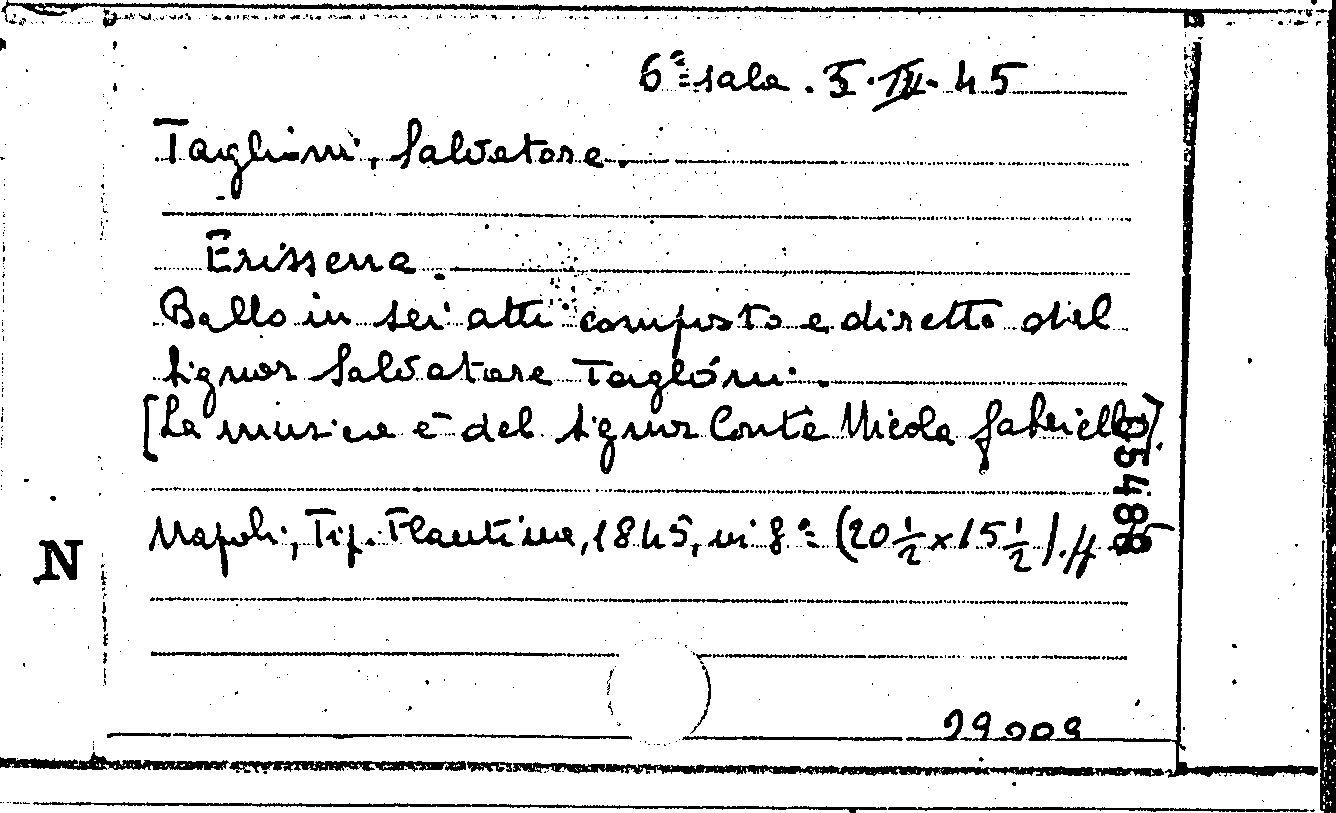 6ª sala. X. IX. 45
Taglioni, Salvatore.
Erissena.
Ballo in sei atti composto e diretto del
signor Salvatore Taglioni.
[La musica è del signor Conte Nicola Gabrielli].
Napoli, Tip. Flautina, 1845, in 8º (20 1/2 x 15 1/2).
05488
N
29009